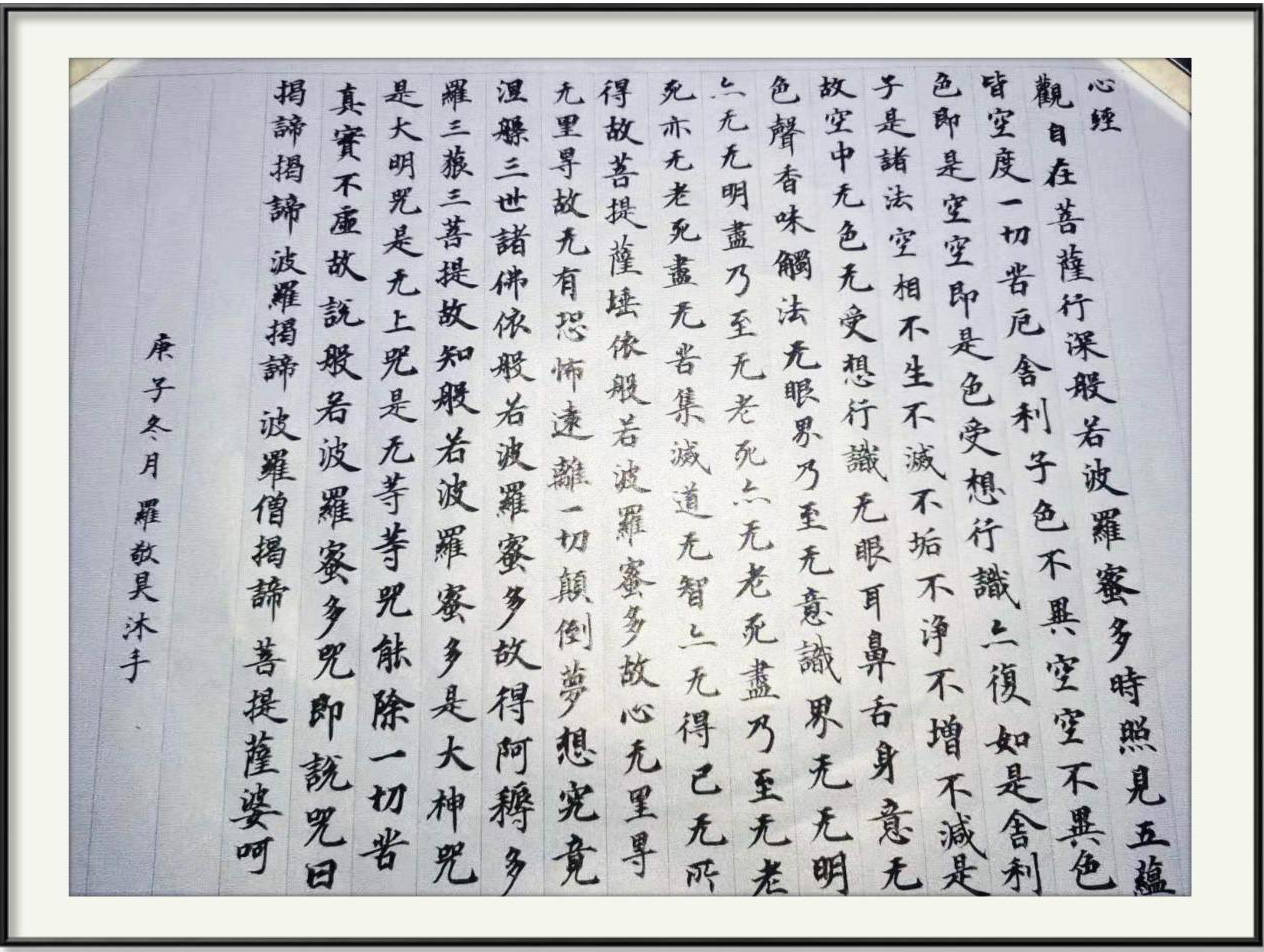 心經
觀自在菩薩行深般若波羅蜜多時照見五蘊
皆空度一切苦厄舍利子色不異空空不異色
色即是空空即是色受想行識亦復如是舍利
子是諸法空相不生不滅不垢不淨不增不減是
故空中无色无受想行識无眼耳鼻舌身意无
色聲香味觸法无眼界乃至无意識界无无明
亦无无明盡乃至无老死亦无老死盡乃至无老
死亦无老死盡无苦集滅道无智亦无得已无所
得故菩提薩埵依般若波羅蜜多故心无罣㝵
无罣㝵故无有恐怖遠離一切顛倒夢想究竟
涅槃三世諸佛依般若波羅蜜多故得阿耨多
羅三藐三菩提故知般若波羅蜜多是大神咒
是大明咒是无上咒是无等等咒能除一切苦
真實不虛故說般若波羅蜜多咒即說咒曰
揭諦揭諦波羅揭諦波羅僧揭諦菩提薩婆呵
庚子冬月羅敬昊沐手